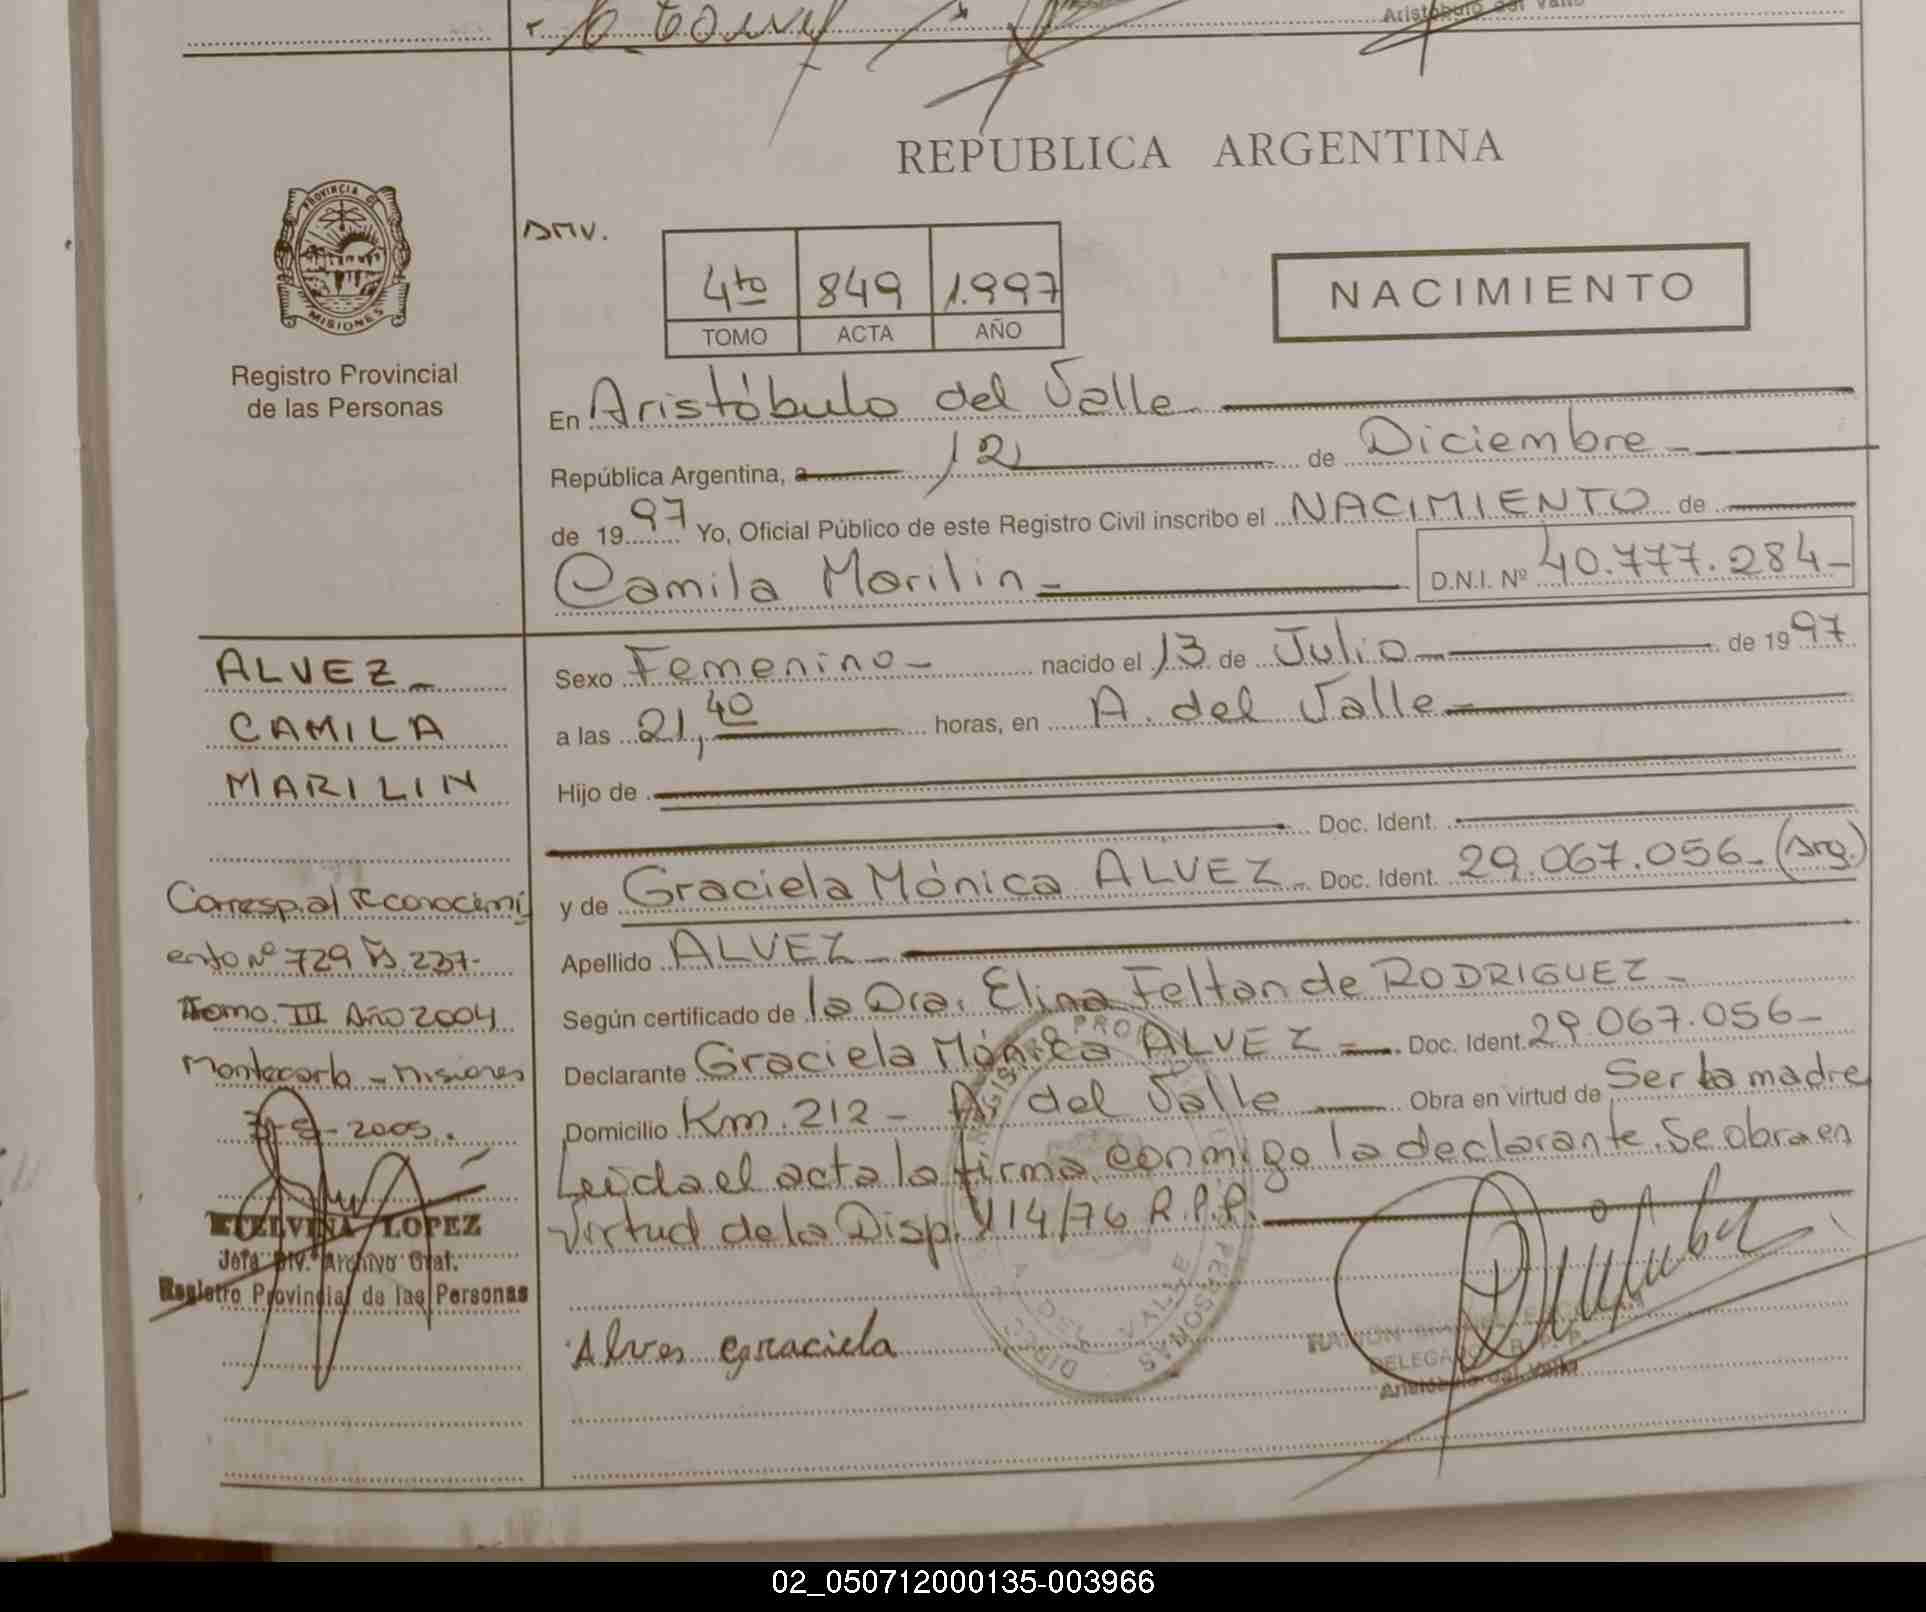 Aristóbulo del Valle
REPUBLICA ARGENTINA
PROVINCIA DE
MISIONES
Registro Provincial
de las Personas
4to 849 1.997
TOMO ACTA AÑO
NACIMIENTO
En Aristóbulo del Valle
República Argentina, a 12 de Diciembre
de 1997 Yo, Oficial Público de este Registro Civil inscribo el NACIMIENTO de
Camila Marilin D.N.I. Nº 40.777.284
ALVEZ
CAMILA
MARILIN
Sexo Femenino nacido el 13 de Julio de 1997
a las 21,40 horas, en A. del Valle
Hijo de
Doc. Ident.
y de Graciela Mónica ALVEZ Doc. Ident. 29.067.056 (Arg.)
Apellido ALVEZ
Según certificado de la Dra. Elina Feltan de RODRIGUEZ
Declarante Graciela Mónica ALVEZ Doc. Ident. 29.067.056
Domicilio Km. 212 - A. del Valle Obra en virtud de Ser la madre
Leida el acta la firma conmigo la declarante. Se obra en
virtud de la Disp. 114/76 R.P.P.
Corresp. al Reconocimi
ento Nº 729 Fº 237-
Tomo III Año 2004
Montecarlo - Misiones
ETELVINA LOPEZ
Jefa Div. Archivo Gral.
Registro Provincial de las Personas
Alves graciela
A. DEL VALLE
DELEGADO R. P. P.
Aristóbulo del Valle
02_050712000135-003966